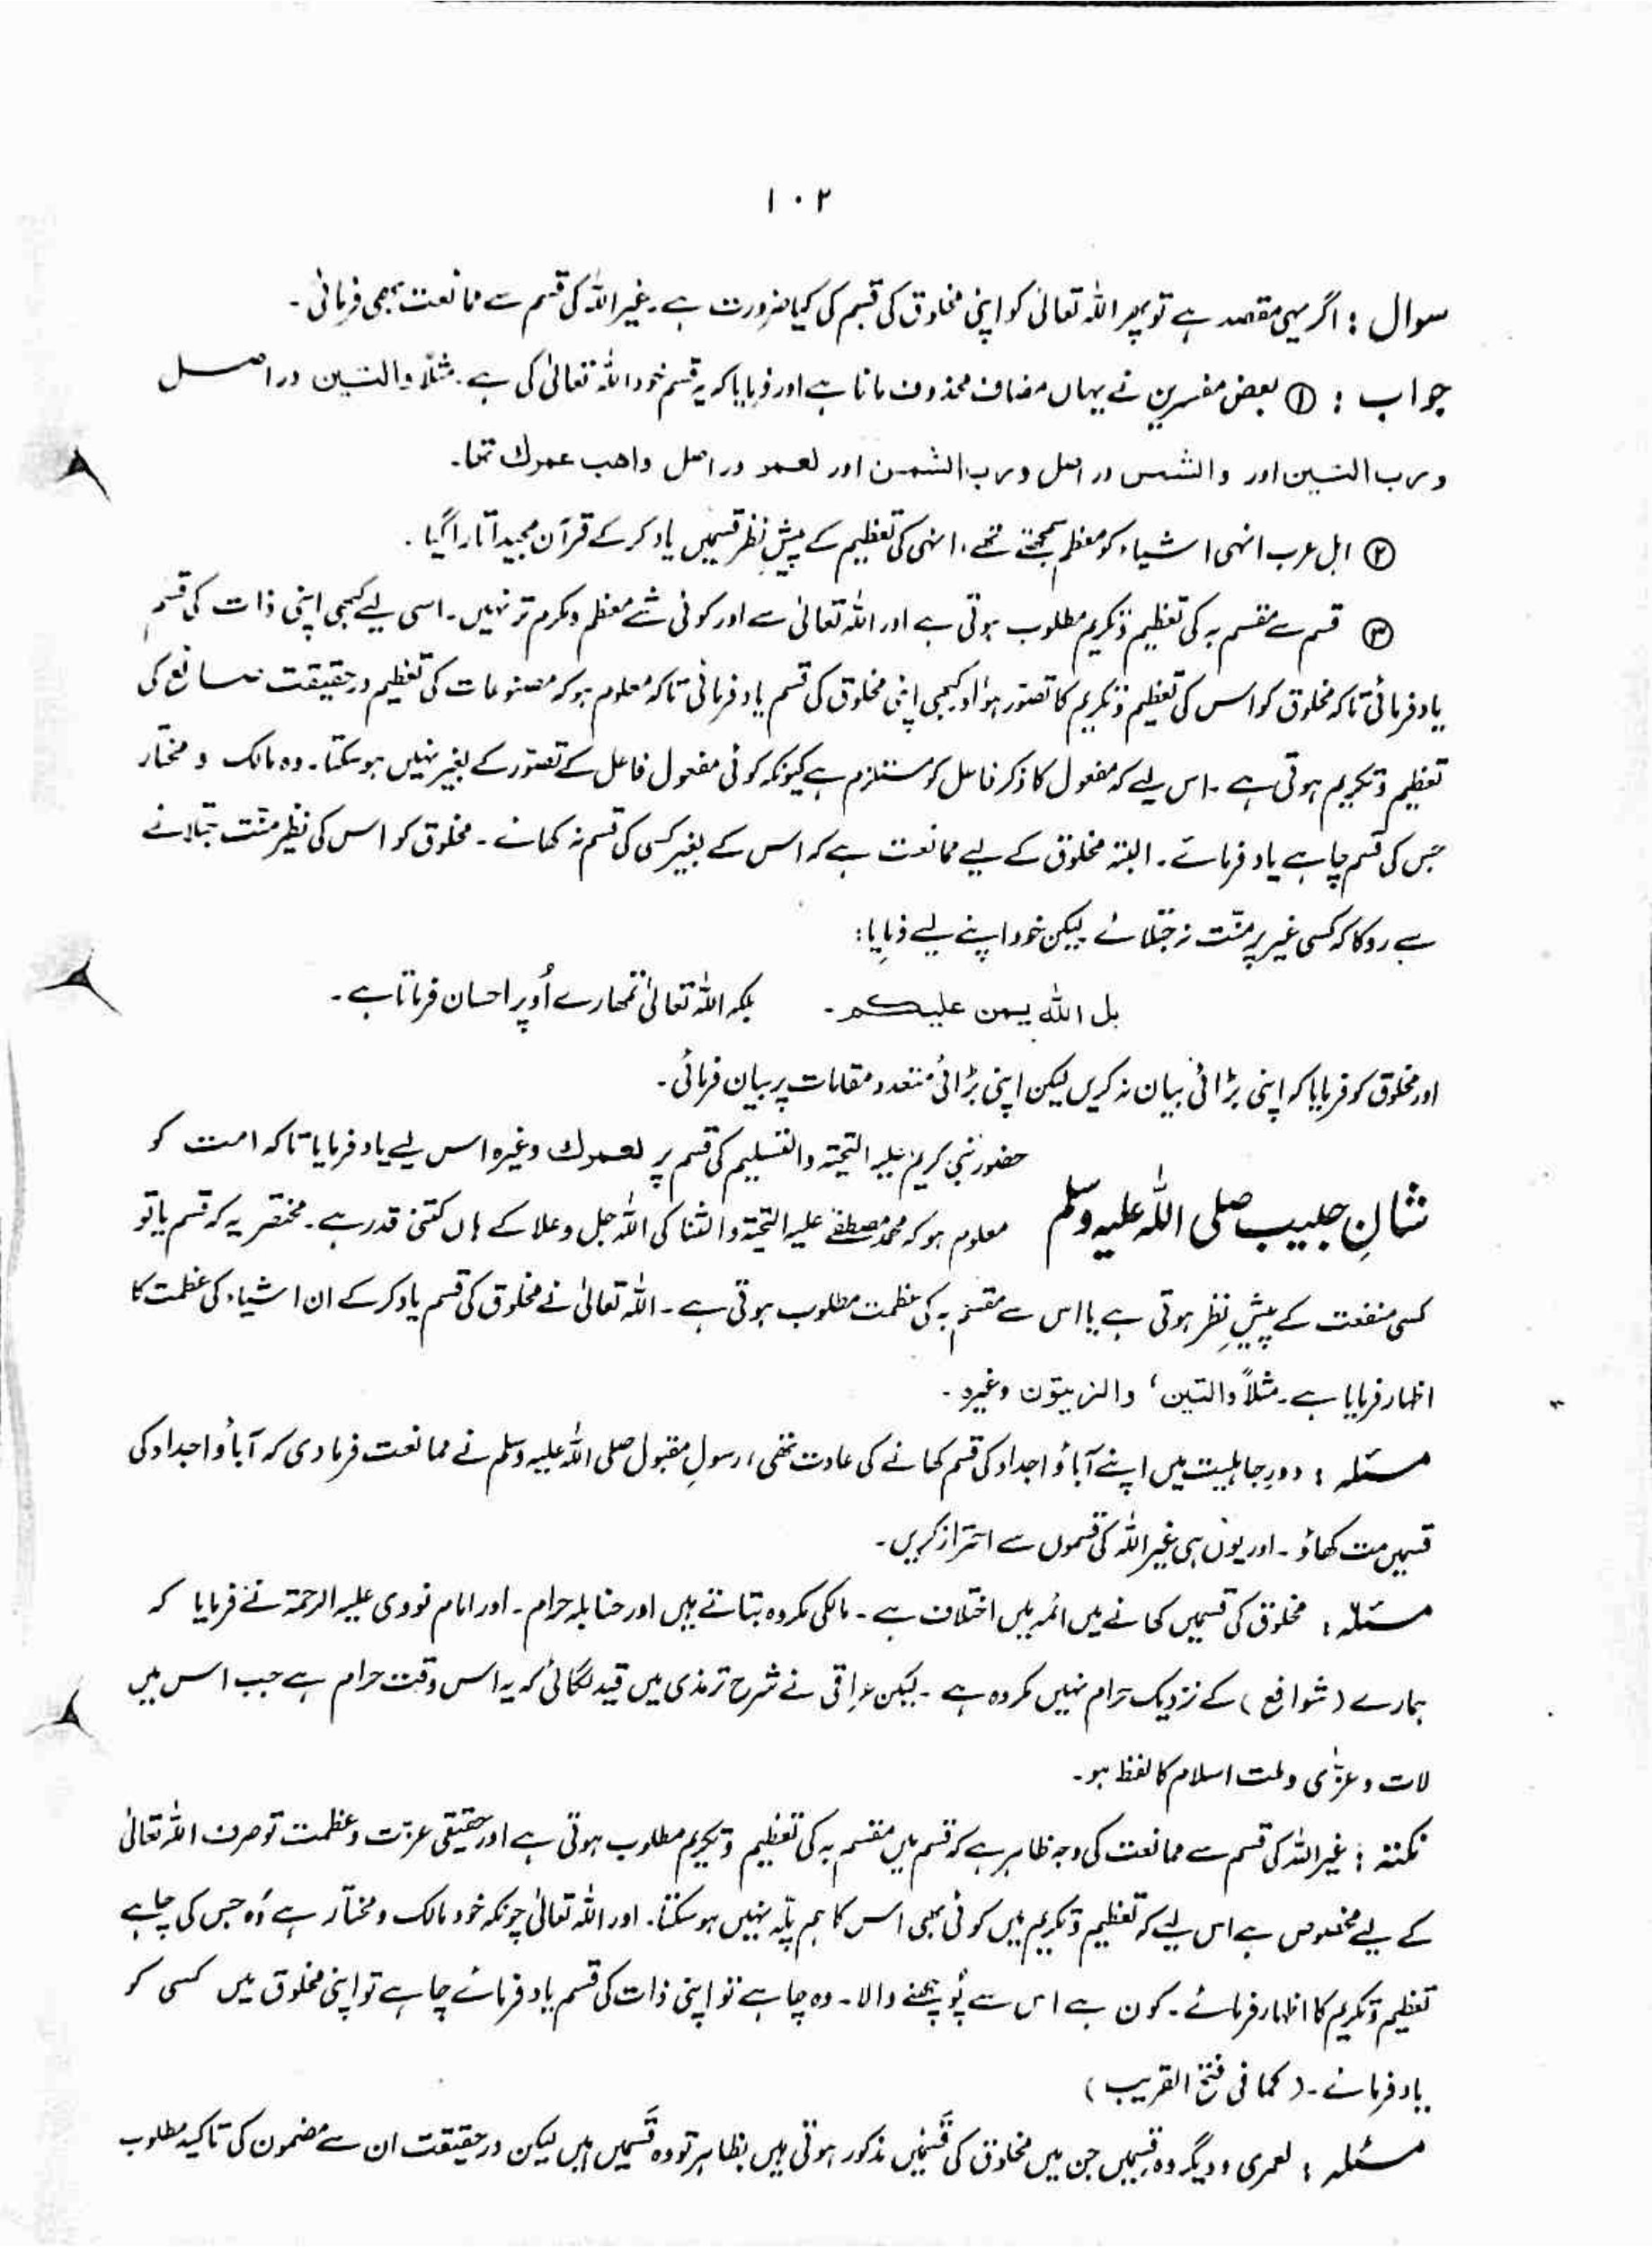 ۱۰۲
سوال : اگر یہی مقصد ہے تو پھر اللہ تعالیٰ کو اپنی مخلوق کی قسم کی کیا ضرورت ہے ۔ غیر اللہ کی قسم سے ممانعت بھی فرمائی ۔
جواب : ① بعض مفسرین نے یہاں مضاف محذوف مانا ہے اور فرمایا کہ یہ قسم خود اللہ تعالیٰ کی ہے ۔ مثلاً والتین در اصل
ورب التین اور والشمس در اصل ورب الشمس اور لعمر در اصل واھب عمرک تھا ۔
② اہل عرب انہی اشیاء کو معظم سمجھتے تھے ، انہی کی تعظیم کے پیشِ نظر قسمیں یاد کر کے قرآن مجید اتارا گیا ۔
③ قسم سے مقسم بہ کی تعظیم و تکریم مطلوب ہوتی ہے اور اللہ تعالیٰ سے اور کوئی شے معظم و مکرم تر نہیں ۔ اسی لیے کبھی اپنی ذات کی قسم
یاد فرمائی تاکہ مخلوق کو اس کی تعظیم و تکریم کا تصور ہو اور کبھی اپنی مخلوق کی قسم یاد فرمائی تاکہ معلوم ہو کہ مصنوعات کی تعظیم درحقیقت صانع کی
تعظیم و تکریم ہوتی ہے ۔ اس لیے کہ مفعول کا ذکر فاعل کو مستلزم ہے کیونکہ کوئی مفعول فاعل کے تصوّر کے بغیر نہیں ہو سکتا ۔ وہ مالک و مختار
جس کی قسم چاہے یاد فرمائے ۔ البتہ مخلوق کے لیے ممانعت ہے کہ اس کے بغیر کسی کی قسم نہ کھائے ۔ مخلوق کو اس کی نظیر منّت جتلانے
سے روکا کہ کسی غیر پر منّت نہ جتلائے لیکن خود اپنے لیے فرمایا :
بل اللہ یمن علیکم ۔ بلکہ اللہ تعالیٰ تمھارے اُوپر احسان فرماتا ہے ۔
اور مخلوق کو فرمایا کہ اپنی بڑائی بیان نہ کریں لیکن اپنی بڑائی متعدد مقامات پر بیان فرمائی ۔
شانِ حبیب صلی اللہ علیہ وسلم
حضور نبی کریم علیہ التحیۃ والتسلیم کی قسم پر لعمرک وغیرہ اس لیے یاد فرمایا تاکہ امت کو
معلوم ہو کہ محمد مصطفےٰ علیہ التحیۃ والثنا کی اللہ جل وعلا کے ہاں کتنی قدر ہے ۔ مختصر یہ کہ قسم یا تو
کسی منفعت کے پیشِ نظر ہوتی ہے یا اس سے مقسم بہ کی عظمت مطلوب ہوتی ہے ۔ اللہ تعالیٰ نے مخلوق کی قسم یاد کر کے ان اشیاء کی عظمت کا
اظہار فرمایا ہے ۔ مثلاً والتین ، والزیتون وغیرہ ۔
مسئلہ : دورِ جاہلیت میں اپنے آباؤ اجداد کی قسم کھانے کی عادت تھی ، رسولِ مقبول صلی اللہ علیہ وسلم نے ممانعت فرما دی کہ آباؤ اجداد کی
قسمیں مت کھاؤ ۔ اور یوں ہی غیر اللہ کی قسموں سے احتراز کریں ۔
مسئلہ : مخلوق کی قسمیں کھانے میں ائمہ میں اختلاف ہے ۔ مالکی مکروہ بتاتے ہیں اور حنابلہ حرام ۔ اور امام نووی علیہ الرحمۃ نے فرمایا کہ
ہمارے ( شوافع ) کے نزدیک حرام نہیں مکروہ ہے ۔ لیکن عراقی نے شرح ترمذی میں قید لگائی کہ یہ اس وقت حرام ہے جب اس میں
لات و عزّٰی و ملت اسلام کا لفظ ہو ۔
نکتہ : غیر اللہ کی قسم سے ممانعت کی وجہ ظاہر ہے کہ قسم میں مقسم بہ کی تعظیم و تکریم مطلوب ہوتی ہے اور حقیقی عزّت و عظمت تو صرف اللہ تعالیٰ
کے لیے مخصوص ہے اس لیے کہ تعظیم و تکریم میں کوئی بھی اس کا ہم پلّہ نہیں ہو سکتا ۔ اور اللہ تعالیٰ چونکہ خود مالک و مختار ہے وُہ جس کی چاہے
تعظیم و تکریم کا اظہار فرمائے ۔ کون ہے اس سے پُوچھنے والا ۔ وہ چاہے تو اپنی ذات کی قسم یاد فرمائے چاہے تو اپنی مخلوق میں کسی کو
یاد فرمائے ۔ ( کما فی فتح القریب )
مسئلہ : لعمری و دیگر وہ قسمیں جن میں مخلوق کی قَسَمیں مذکور ہوتی ہیں بظاہر تو وہ قَسَمیں ہیں لیکن درحقیقت ان سے مضمون کی تاکید مطلوب